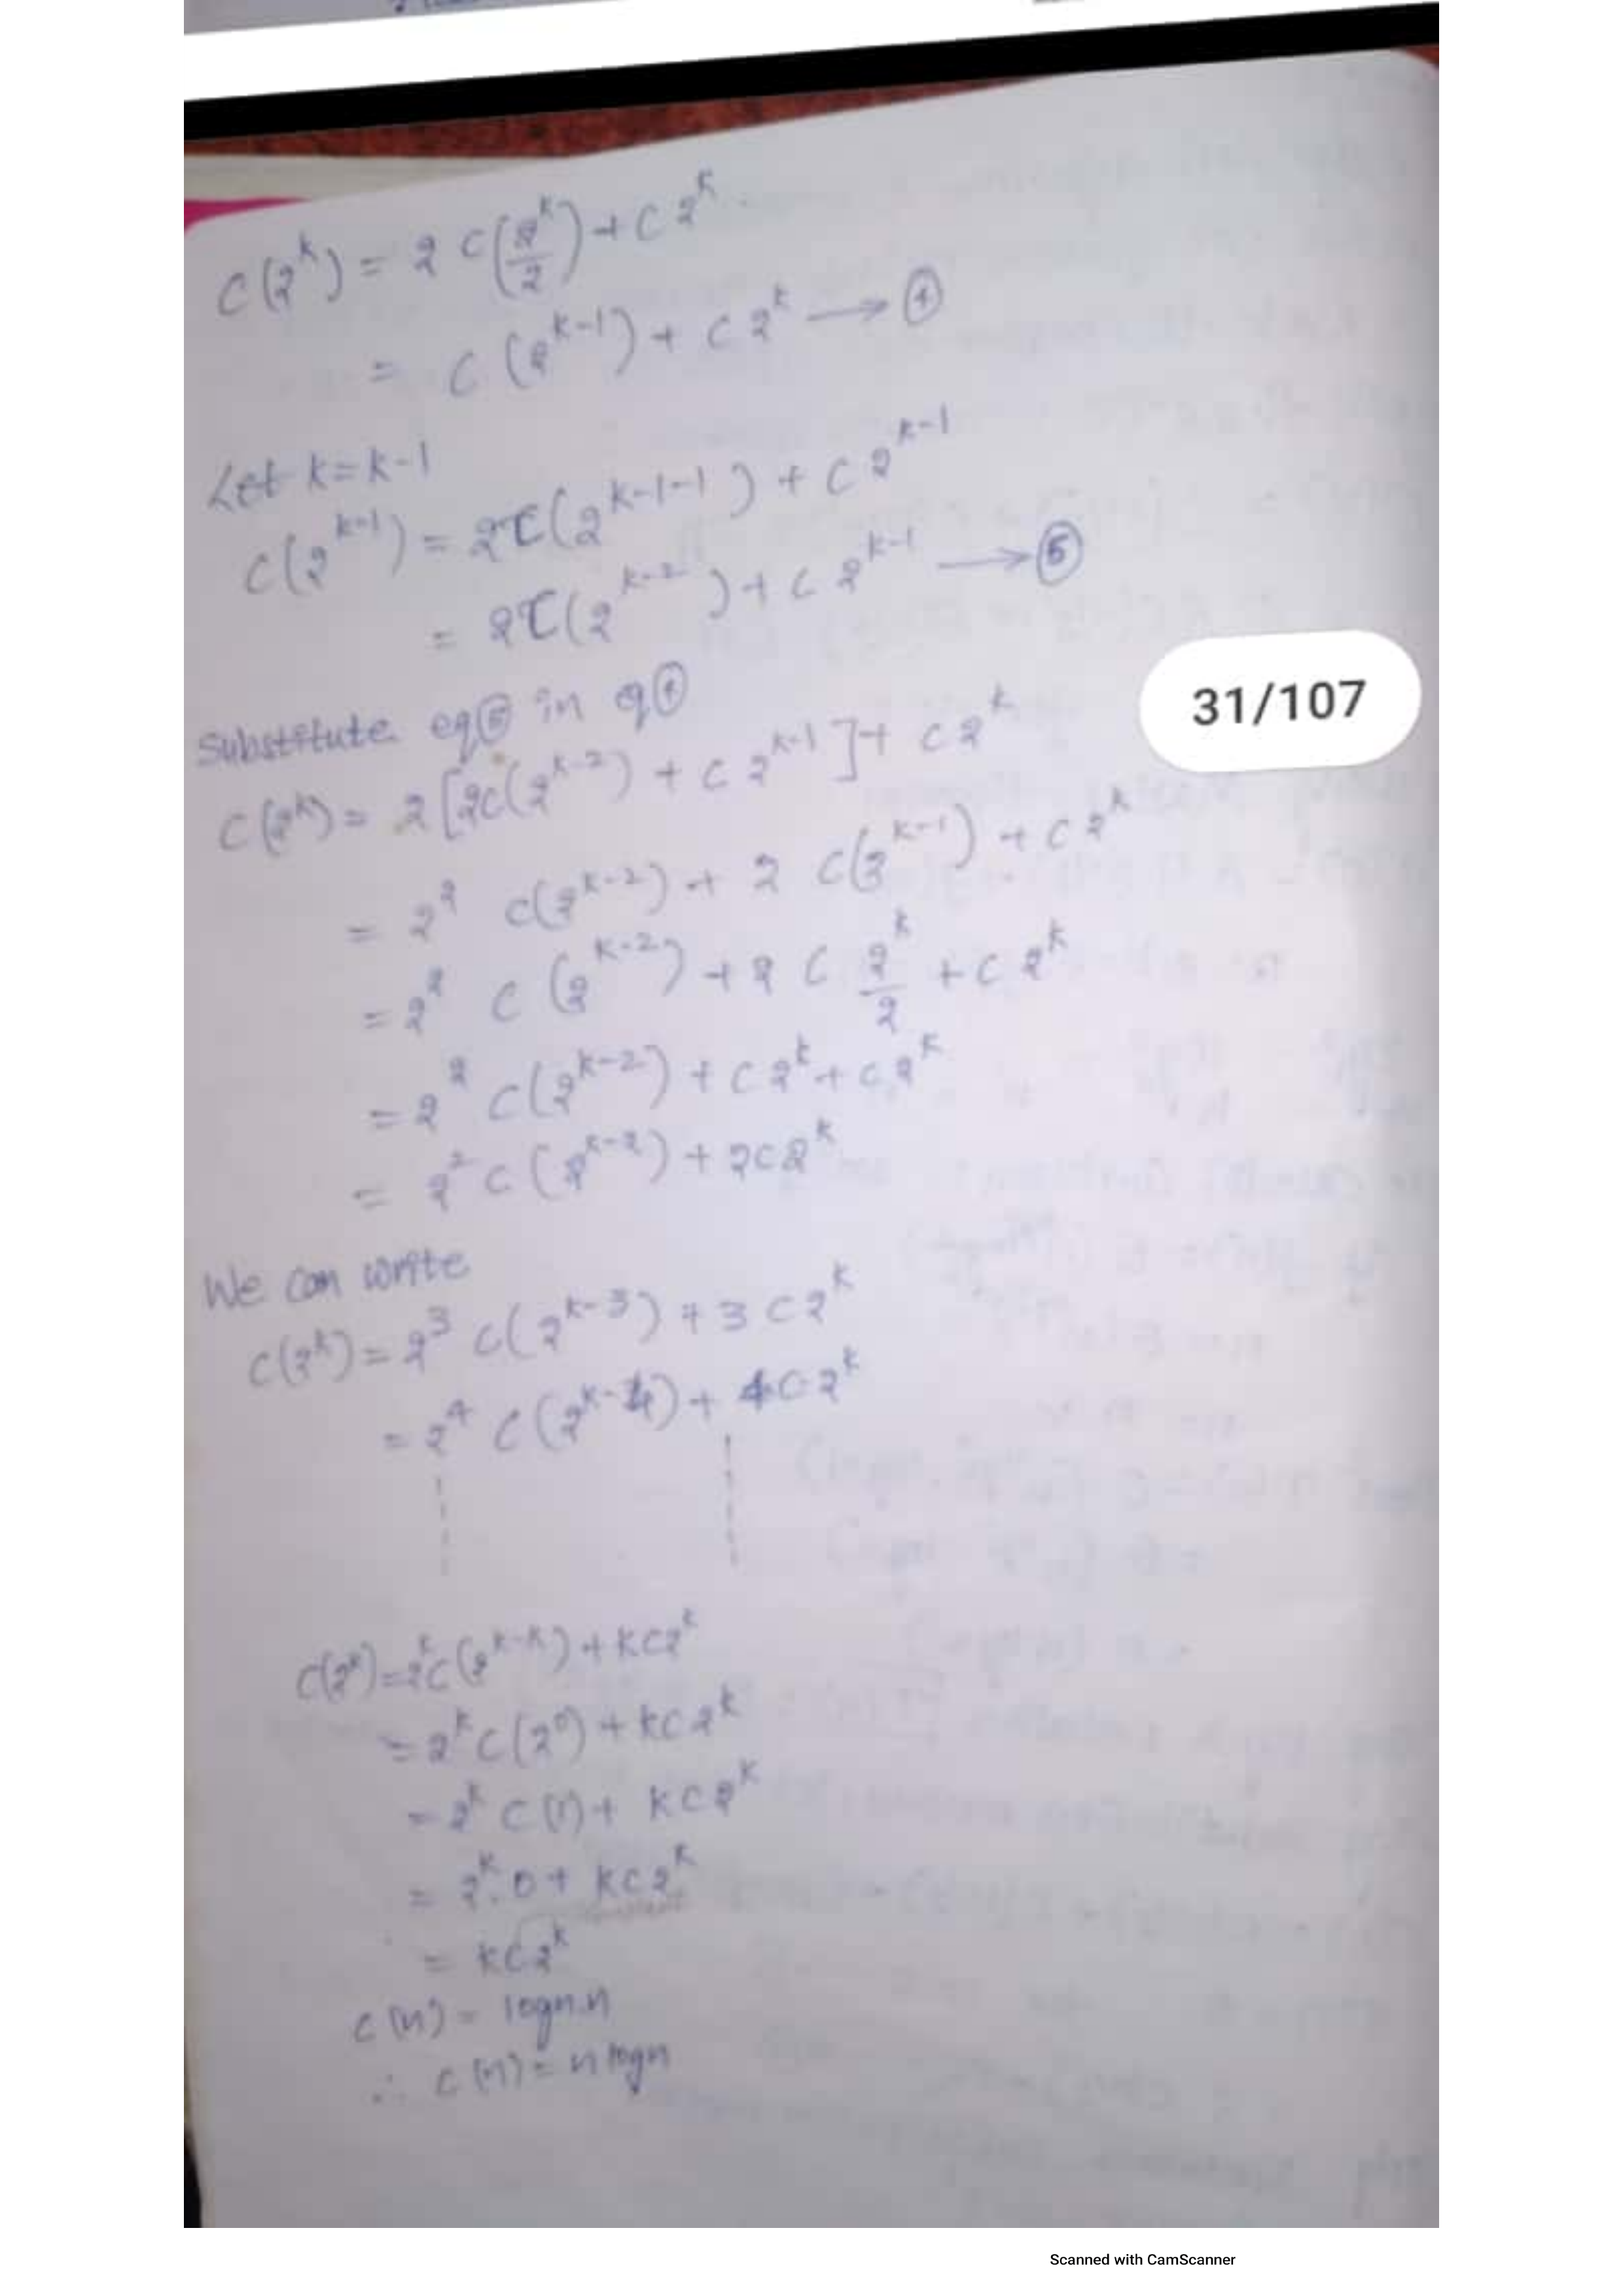 C(2^k) = 2 C(2^k/2) + C 2^k
= C (2^{k-1}) + C 2^k → ④
Let k = k-1
C(2^{k-1}) = 2C(2^{k-1-1}) + C 2^{k-1}
= 2C(2^{k-2}) + C 2^{k-1} → ⑤
31/107
Substitute eq⑤ in eq④
C(2^k) = 2 [2C(2^{k-2}) + C 2^{k-1}] + C 2^k
= 2^2 C(2^{k-2}) + 2 C(2^{k-1}) + C 2^k
= 2^2 C (2^{k-2}) + 2 C 2^k/2 + C 2^k
= 2^2 C(2^{k-2}) + C 2^k + C 2^k
= 2^2 C (2^{k-2}) + 2C2^k
We can write
C(2^k) = 2^3 C(2^{k-3}) + 3 C 2^k
= 2^4 C (2^{k-4}) + 4C 2^k
C(2^k) = 2^k C(2^{k-k}) + KC2^k
= 2^k C(2^0) + KC2^k
= 2^k C(1) + KC2^k
= 2^k.0 + KC2^k
= KC2^k
C(n) = logn.n
∴ C(n) = n logn
Scanned with CamScanner